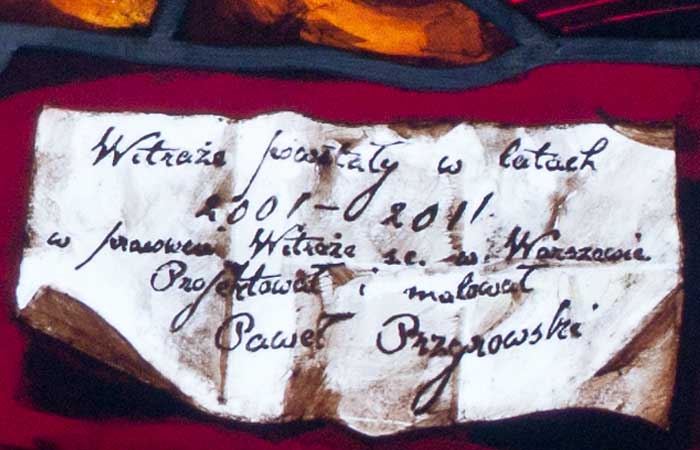 Witraże powstały w latach
2001 - 2011.
w pracowni Witraże s.c. w Warszawie
Projektował i malował
Paweł Przyrowski